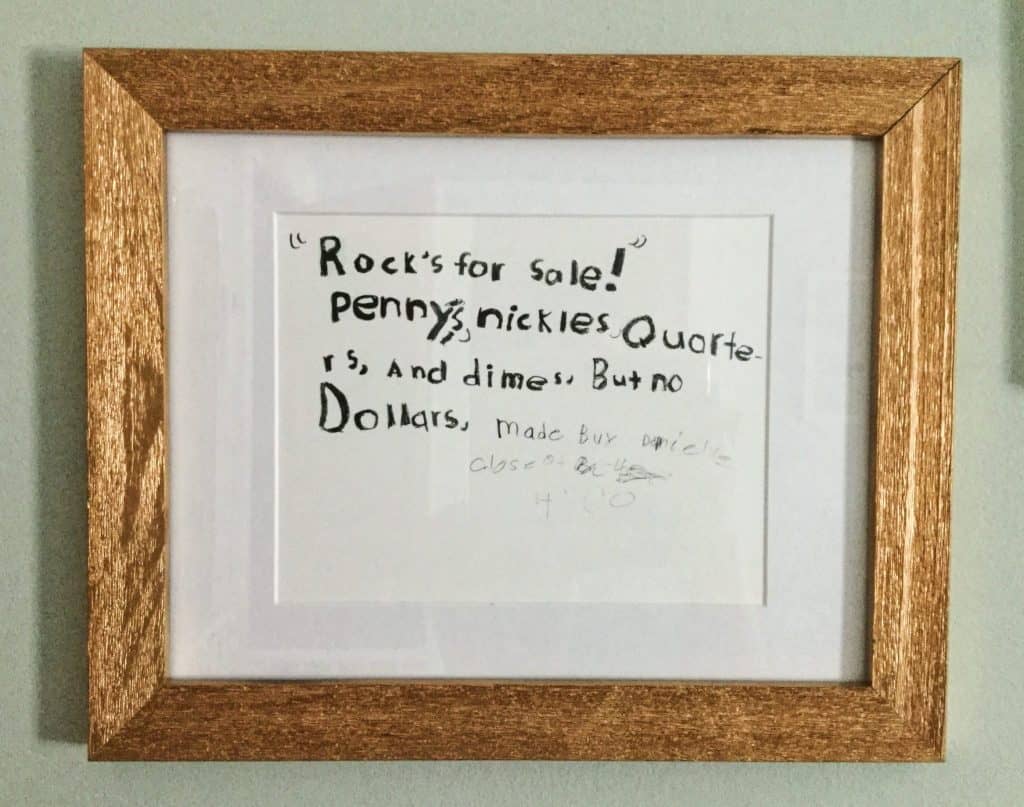 "Rock's for sale!"
Penny's, nickles, Quarte-
rs, And dimes. But no
Dollars, made Buy Danielle
close at